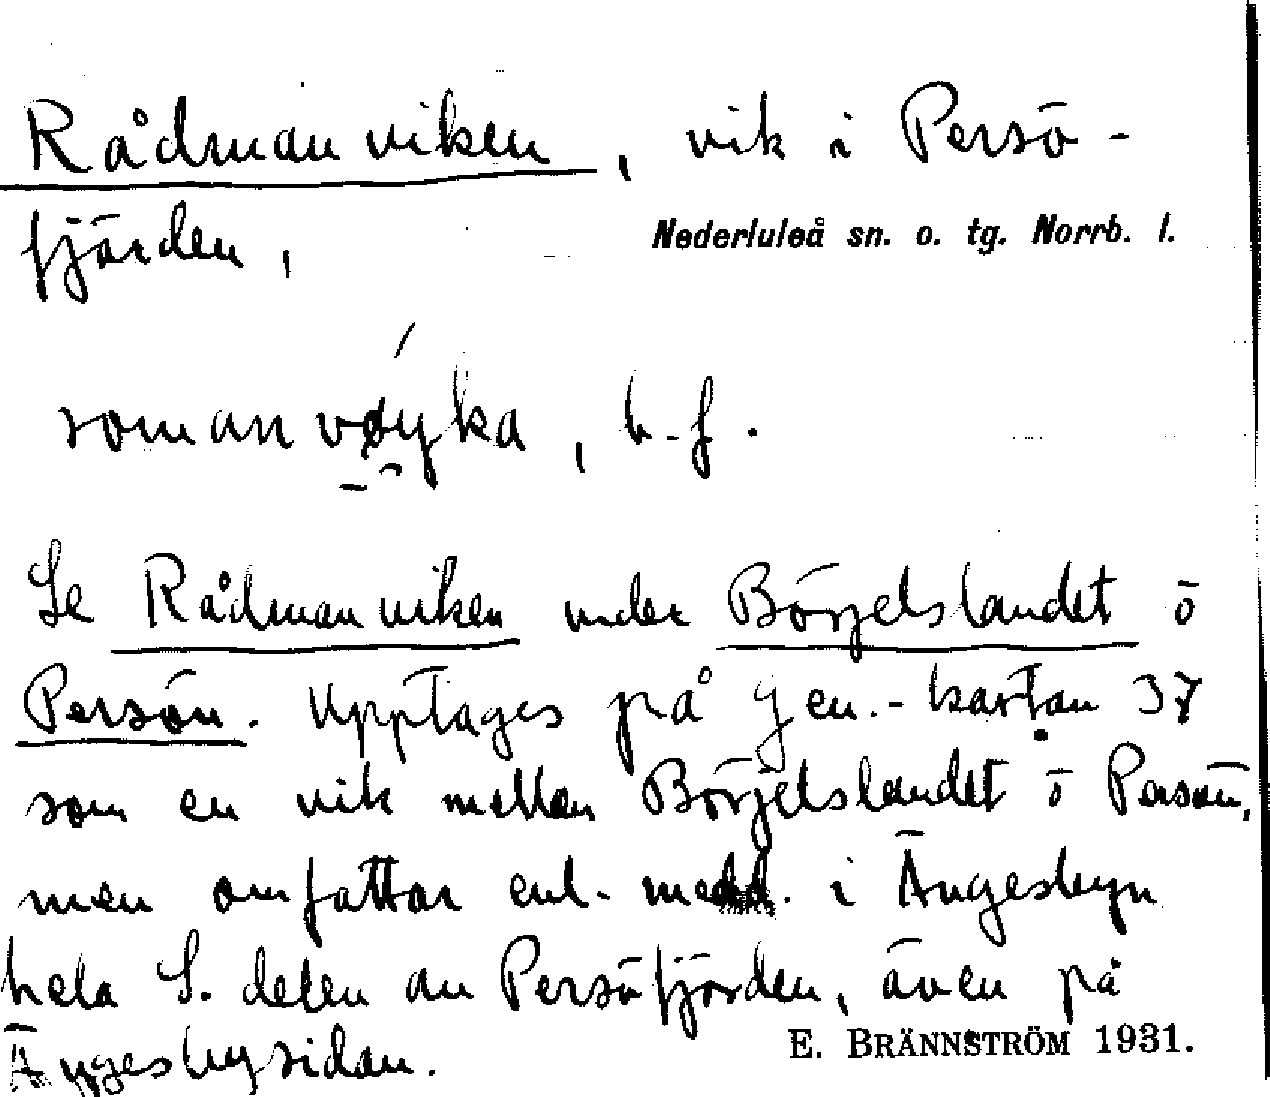 Rådmanviken, vik i Persö-
fjärden,
Nederluleå sn. o. tg. Norrb. l.
b. f.
Se Rådmanviken under Börjelslandet ö
Persön. Upptages på gen.-kartan 37
som en vik mellan Börjelslandet ö Persön,
men omfattar enl. medd. i Ängesbyn
hela S. delen av Persöfjärden, även på
Ängesbysidan.
E. BRÄNNSTRÖM 1931.